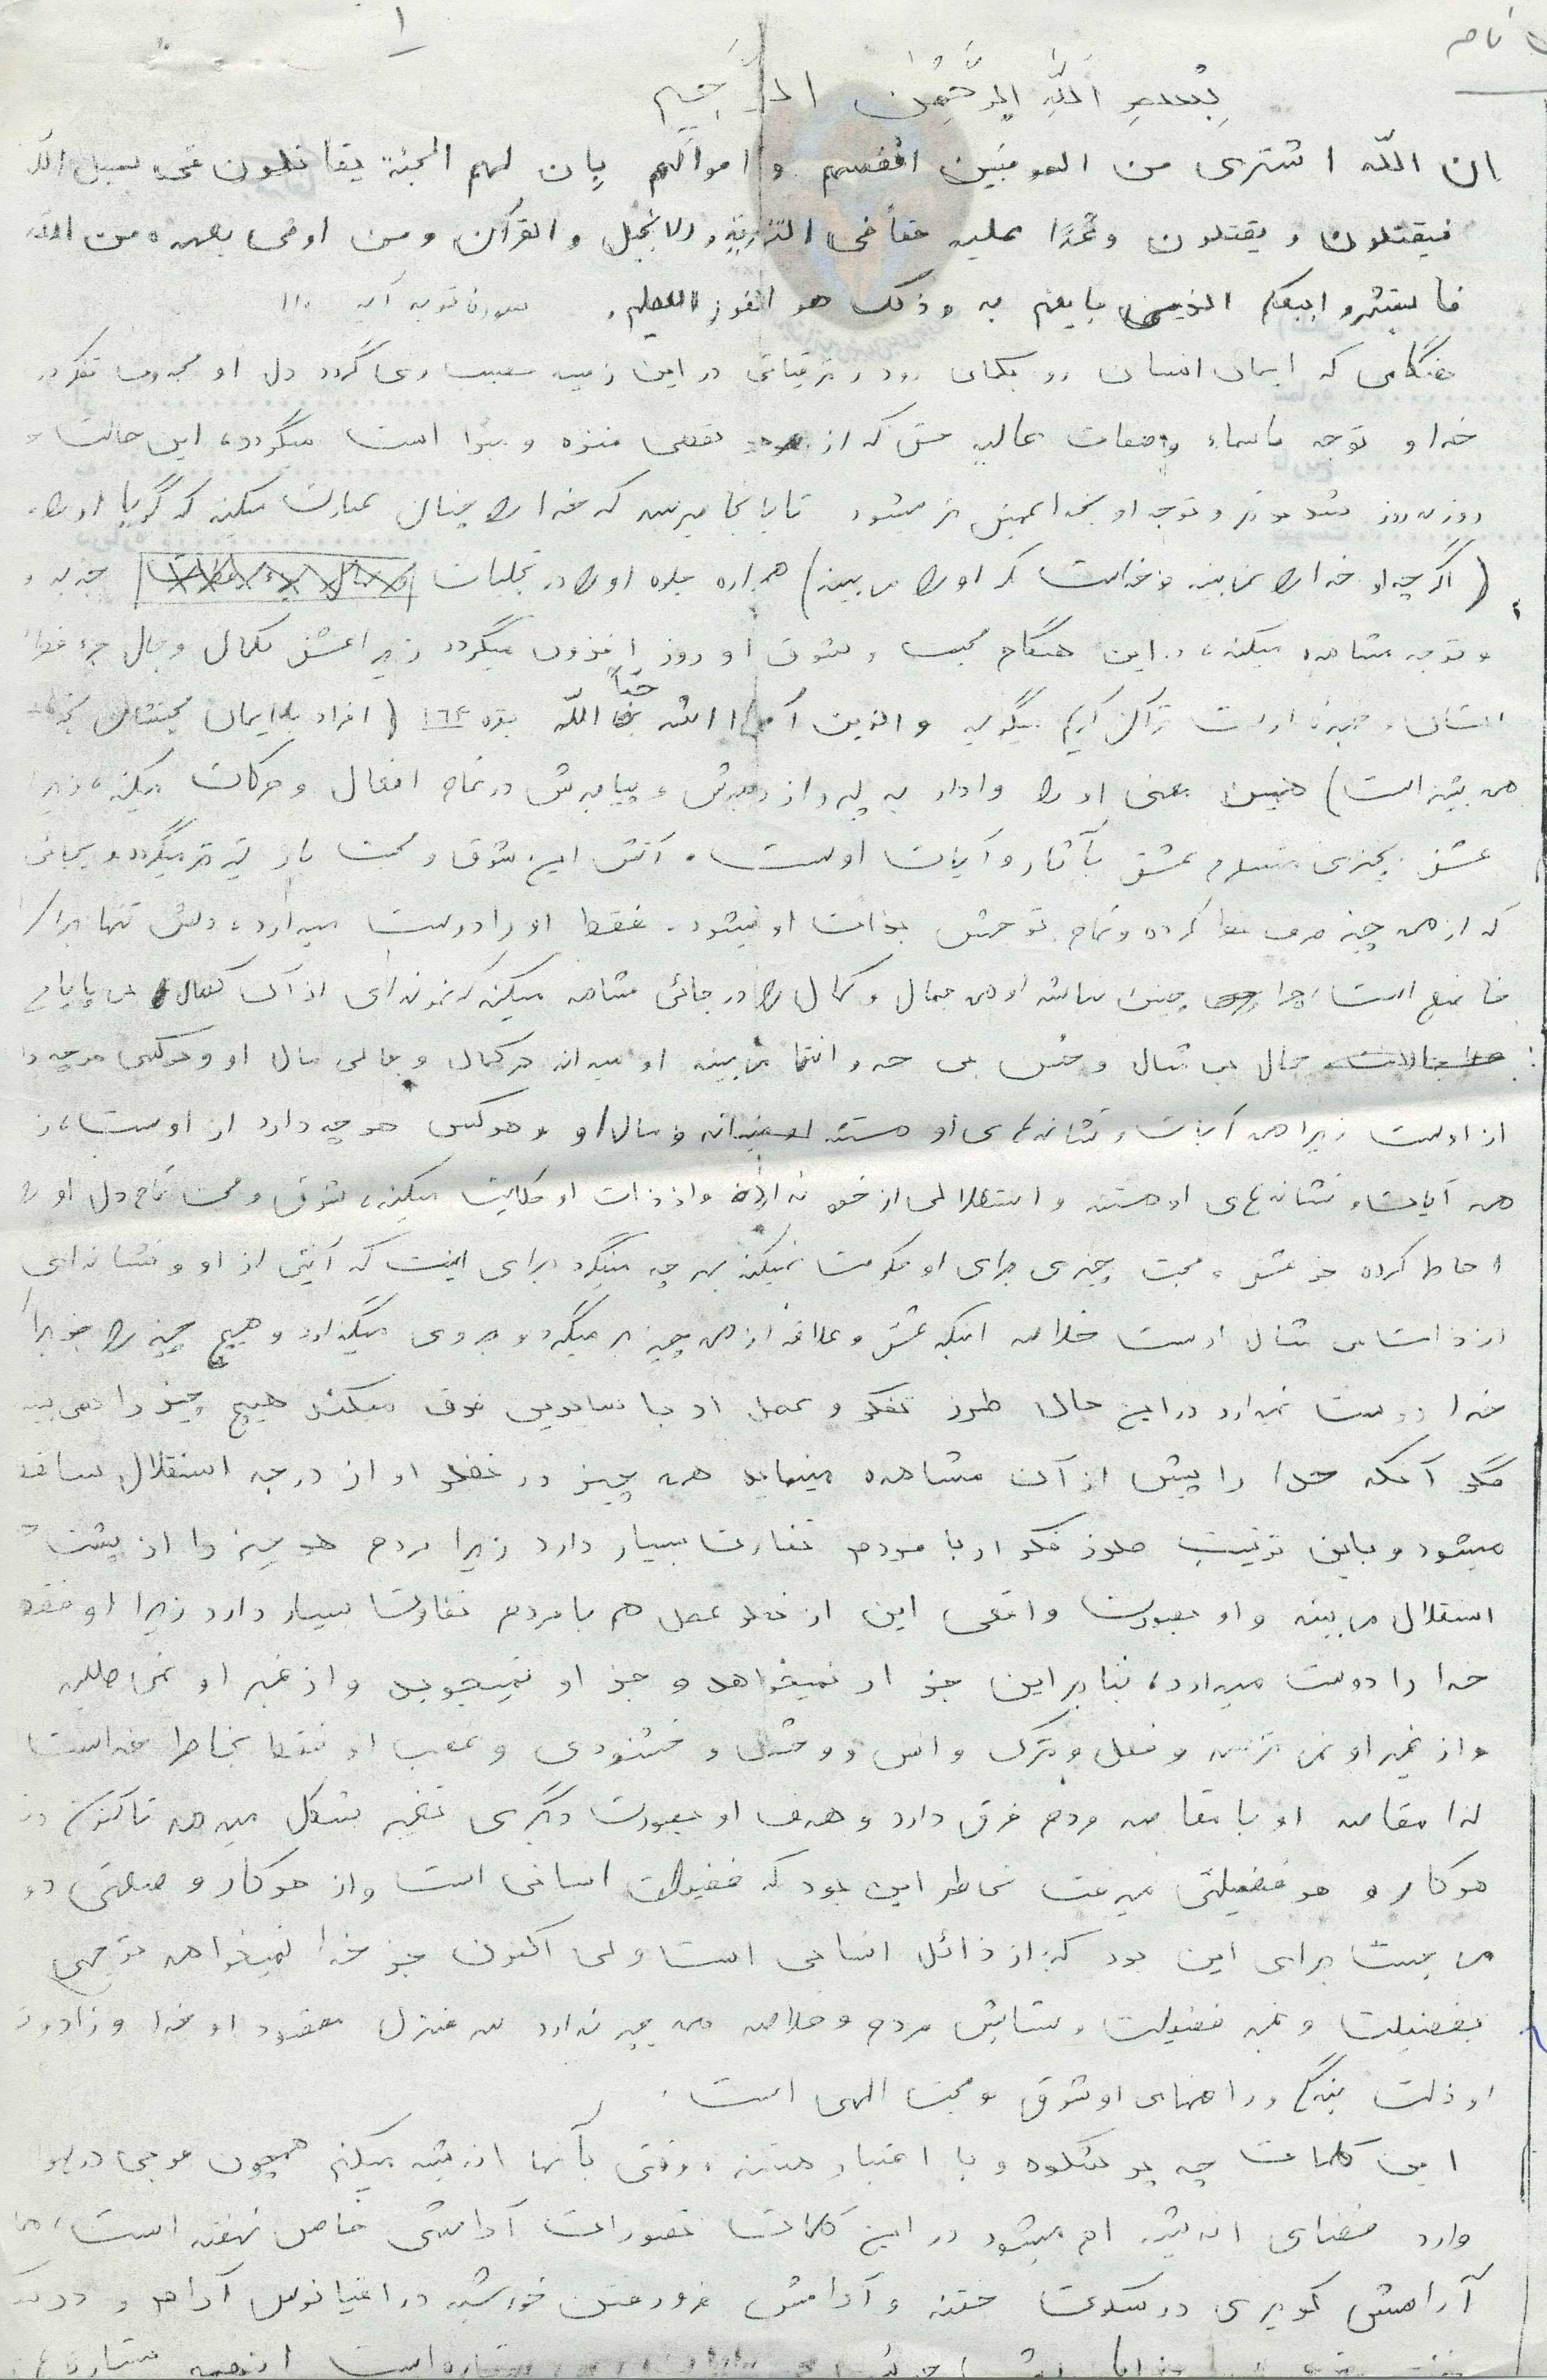 ۱
نامه
بِسْمِ اللّهِ الرَّحْمنِ الرَّحیم
ان اللّه اشتری من المومنین انفسهم و اموالهم بان لهم الجنة یقاتلون فی سبیل الله
فیقتلون و یقتلون وعدًا علیه حقاً فی التوریة و الانجیل و القرآن و من اوفی بعهده من الله
فاستبشروا ببیعکم الذی بایعتم به و ذلک هو الفوز العظیم. سوره توبه آیه ۱۱۰
هنگامی که ایمان انسان رو بکمال رود و ترقیاتی در این زمینه نصیبش می گردد دل او مجذوب تفکر در
خدا و توجه باسماء و صفات عالیه حق که از هر نقصی منزه و مبرا است میگردد، این حالت
روز بروز شدیدتر و توجه او بخدا عمیق تر میشود تا بآنجا میرسد که خدا را چنان عبادت میکند که گویا او را
(اگر چه او خدا را نمی بیند و خداست که او را می بیند) همواره جلوه او را در تجلیات جذبه و
و توجه مشاهده میکند، در این هنگام محبت و شوق او روز افزون میگردد زیرا عشق بکمال و جمال جزء فطرت
انسان و غریزه اوست قرآن کریم میگوید و الذین آمنوا اشد حبّاً للّه بقره ۱۶۴ (افراد با ایمان محبتشان بخدا
بیشتر است) همین معنی او را وادار به پیروی از رهبرش و پیامبرش در تمام افعال و حرکات میکند، زیرا
عشق بچیزی مستلزم عشق بآثار و آیات اوست. آتش این شوق و محبت باز تیزتر میگردد و بجائی
که از همه چیز صرف نظر کرده و تمام توجهش بذات او میشود. فقط او را دوست میدارد، دلش تنها برای
خاضع است، چرا چنین نباشد او هر جمال و کمال را در جائی مشاهده میکند که نمونه ای از آن کمال بی پایان
جمال بی مثال و حسن بی حد و انتها می بیند او میداند هر کمال و جمالی مال او و هر کسی هر چه دارد
از اوست زیرا همه آیات و نشانه های او هستند و مال او و هر کس هر چه دارد از اوست، ز
همه آیات و نشانه های او هستند و استقلالی از خود ندارند و از ذات او حکایت میکنند، شوق و محبت تمام دل او را
احاطه کرده جز عشق و محبت چیزی برای او حکومت نمیکند بهر چه مینگرد برای اینست که آیتی از او و نشانه ای
از ذات بی مثال اوست خلاصه اینکه عشق و علاقه از همه چیز بر میگیرد و بروی میگذارد و هیچ چیز را جز برای
خدا دوست نمیدارد در این حال طرز تفکر و عمل او با سایرین فرق میکند هیچ چیز را نمی بیند
مگر آنکه خدا را پیش از آن مشاهده مینماید همه چیز در نظر او از درجه استقلال ساقط
میشود و باین ترتیب طرز فکر او با مردم تفاوت بسیار دارد زیرا مردم هر چیز را از پشت
استقلال می بیند و او بصورت واقعی این از نظر عمل هم با مردم تفاوت بسیار دارد زیرا او فقط
خدا را دوست میدارد، بنابراین جز او نمیخواهد و جز او نمیجوید و از غیر او نمی طلبد
و از غیر او نمی ترسد و فعل و ترک و انس و وحشت و خشنودی و غضب او فقط بخاطر خداست
لذا مقاصد او با مقاصد مردم فرق دارد و هدف او بصورت دیگری تغییر شکل میدهد تاکنون در
هر کار و هر فضیلتی میرفت بخاطر این بود که فضیلت انسانی است و از هر کار و صفتی دو
می جست برای این بود که از رذائل انسانی است ولی اکنون جز خدا نمیخواهد توجهی
بفضیلت و غیر فضیلت و ستایش مردم و خلاصه هیچ چیز ندارد سر منزل مقصود او خدا و زاد و
او ذلت بندگی و راهنمای او شوق و محبت الهی است.
این کلمات چه پر شکوه و با اعتبار هستند، وقتی بآنها اندیشه میکنم همچون موجی در
وارد فضای اندیشه ام میشود در این کلمات تصورات آرامشی خاص نهفته است،
آرامش کویری در سکوت خفته و آرامش فرو رفتن خورشید در اقیانوس آرام و در